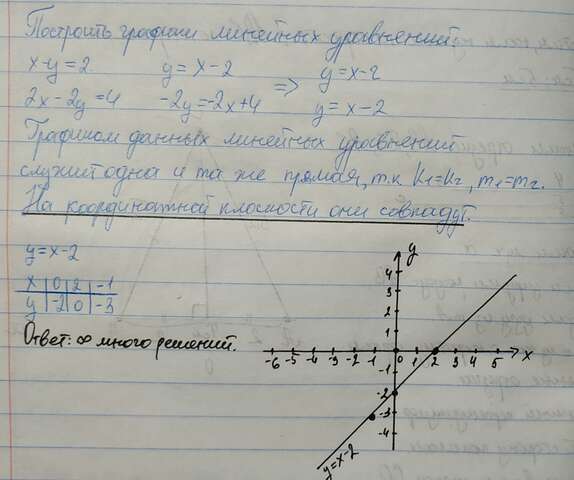 Построить графики линейных уравнений.
x-y=2 y=x-2 => y=x-2
2x-2y=4 -2y=-2x+4 y=x-2
Графиком данных линейных уравнений
служит одна и та же прямая, т.к k₁=k₂, m₁=m₂.
На координатной плоскости они совпадут.
y=x-2
x 0 2 -1
y -2 0 -3
Ответ: ∞ много решений.
y
4
3
2
1
-6 -5 -4 -3 -2 -1 0 1 2 3 4 5 x
-1
-2
-3
-4
y=x-2